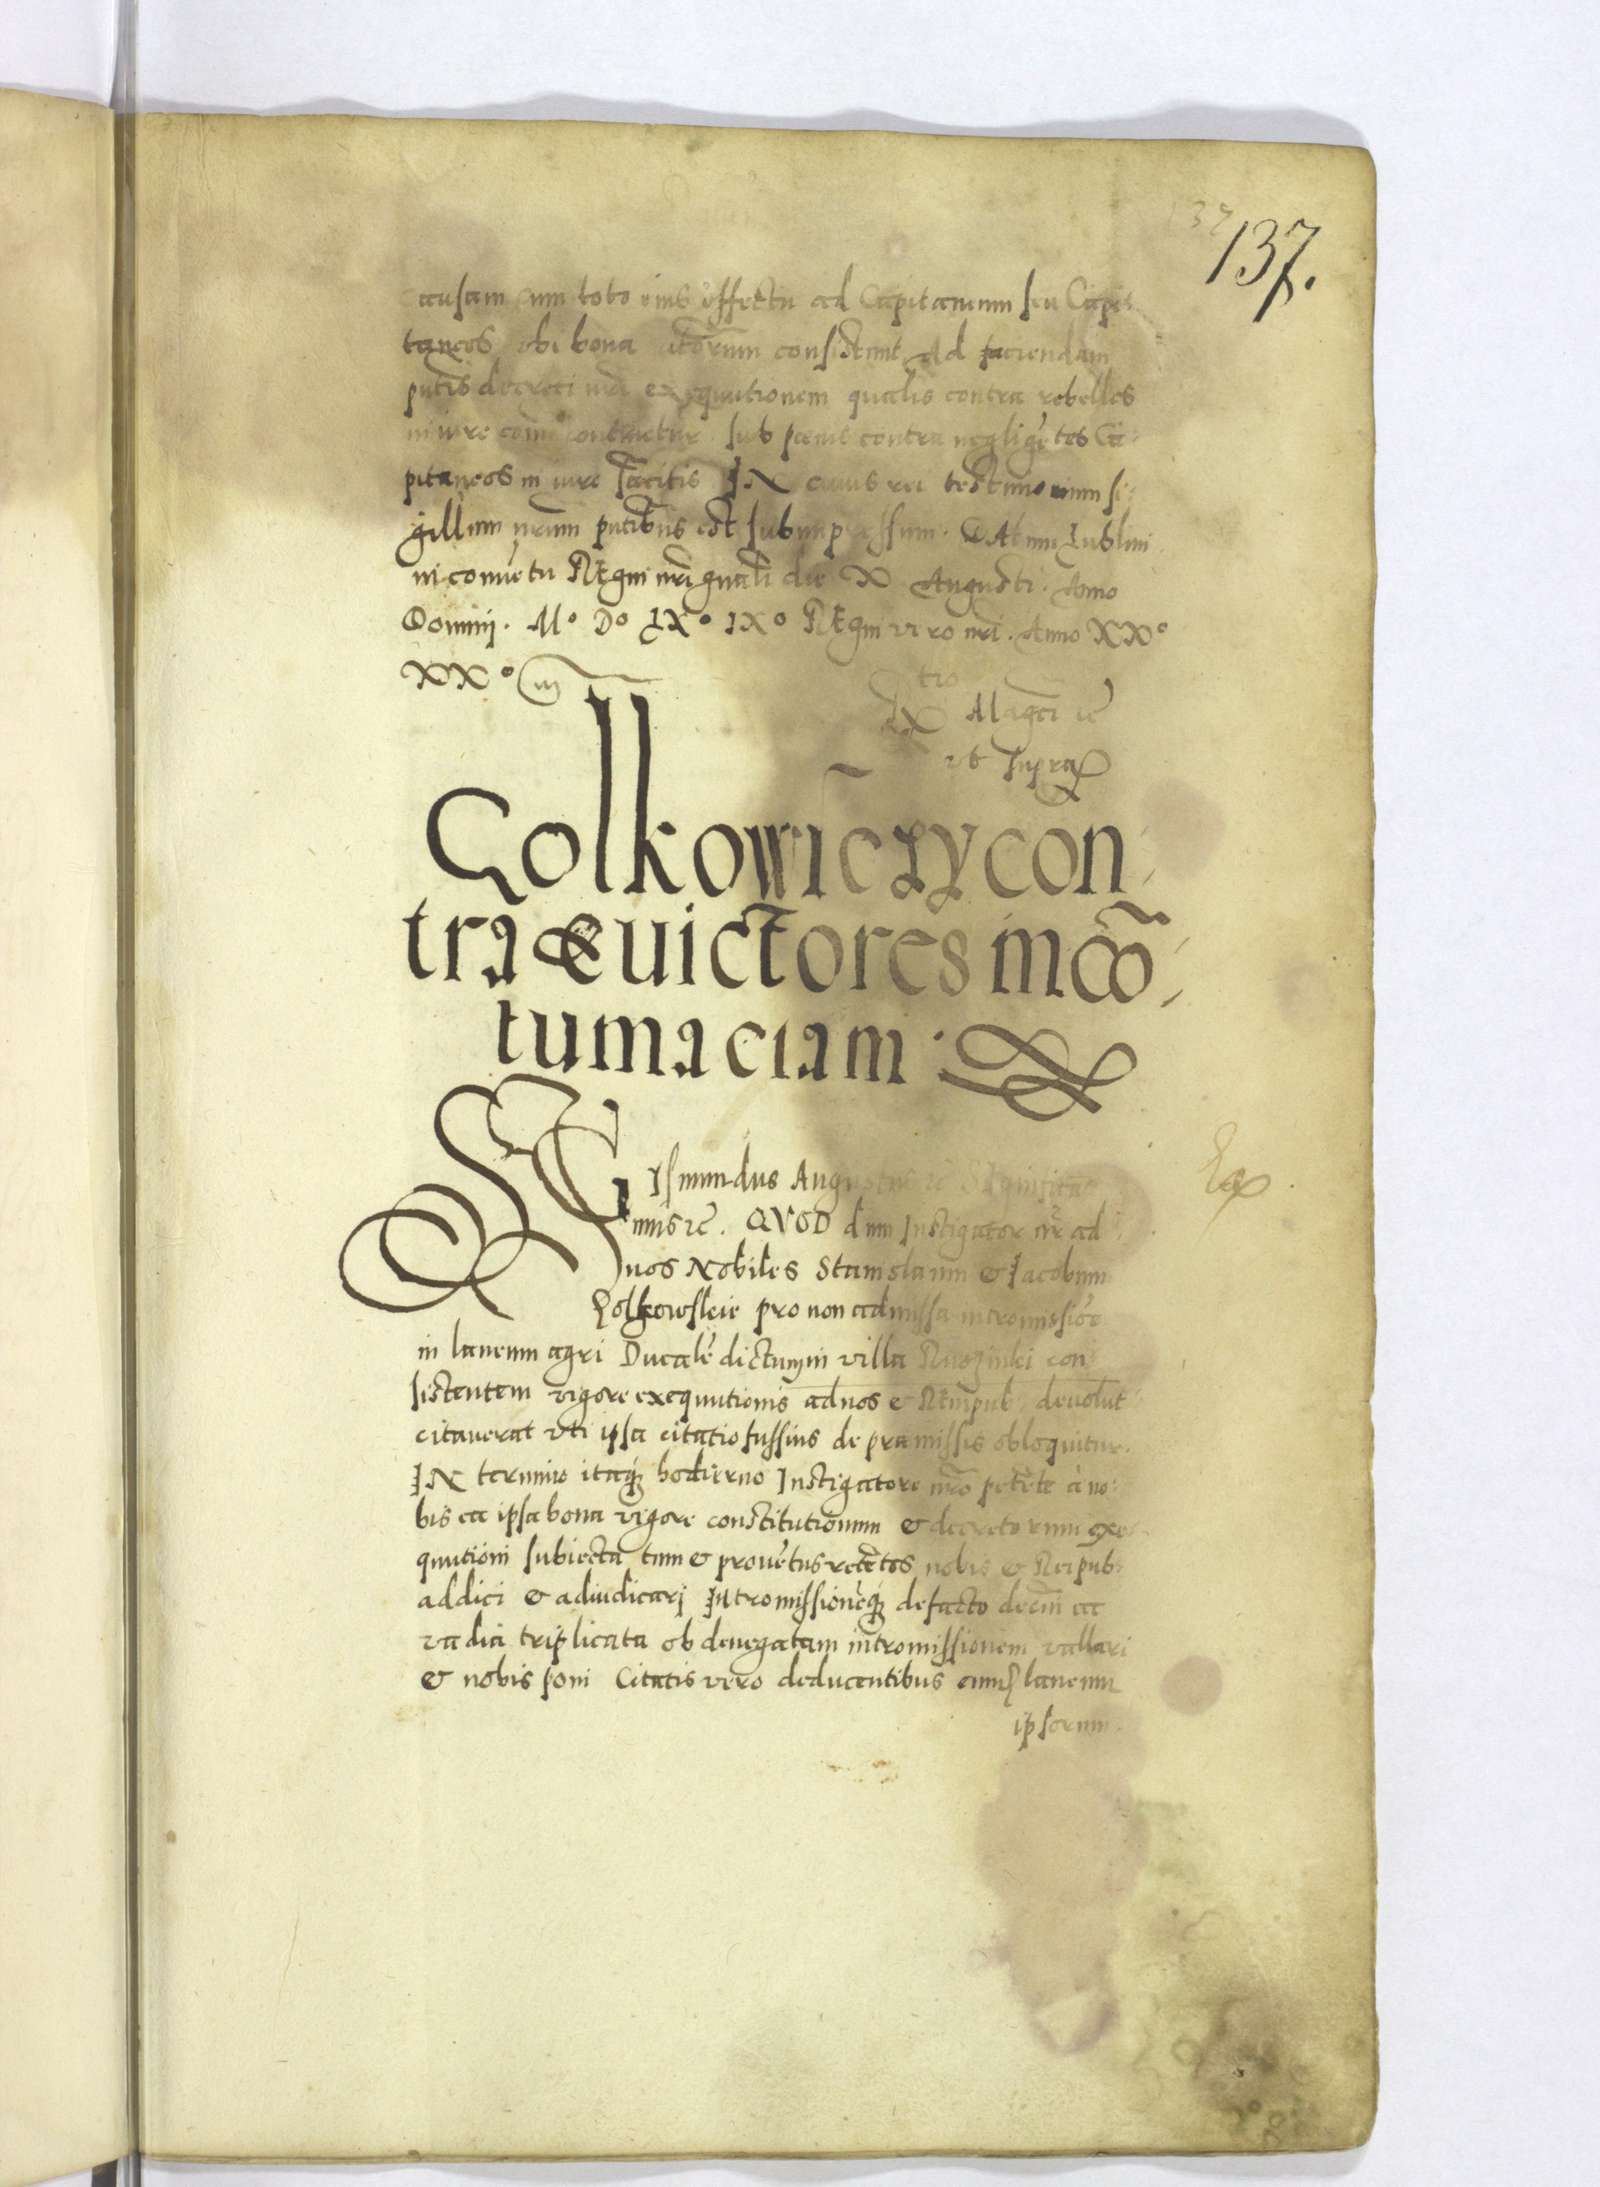 137.
causam cum toto eius effectu ad Capitaneum seu Capi-
taneos ubi bona consistunt Ad faciendam
pn̄tis decreti nr̄i exequutionem qualis contra rebelles
in iure continetur sub pœnis contra neglige̅tes Ca-
pitaneos in iure s̄ancitis IN cuius rei testimonium si-
gillum nr̄um pn̄tibus est subimpressum. DAtum Lublini
in conue̅tu REgni nr̄i gn̄ali die X Augusti. Anno
Domini. Mº Dº LXº IXº REgni vero nr̄i. Anno XXº
XXº
Ex Mag̅ci
ut supra
Golkowiczy con-
tra euictores in co̅-
tumaciam.
SIGismundus Augustus
nimus &c̄. QVOD dum Instigator nr̄ ad
nos Nobiles Stanislaum & Iacobum
Golkowskie pro non admissa intromissio̅e
in laneum agri Ducale̅ dictum in villa con-
sistentem vigore exequutionis ad nos & REmpub. deuolut
citauerat uti ipsa citatio fussius de præmissis obloquitur.
IN termino itaq́ hodierno Instigatore nr̄o pete̅te à no-
bis ea ipsa bona vigore constitutionum & decretorum exe-
quutioni subiecta tum & proue̅tus rece̅tos nobis & Reipub:
addici & adiudicari Intromissione̅q́ de facto dec̅ni ac
vadia triplicata ob denegatam intromissionem vallari
& nobis poni Citatis vero deducentibus eund laneum
ipsorum.